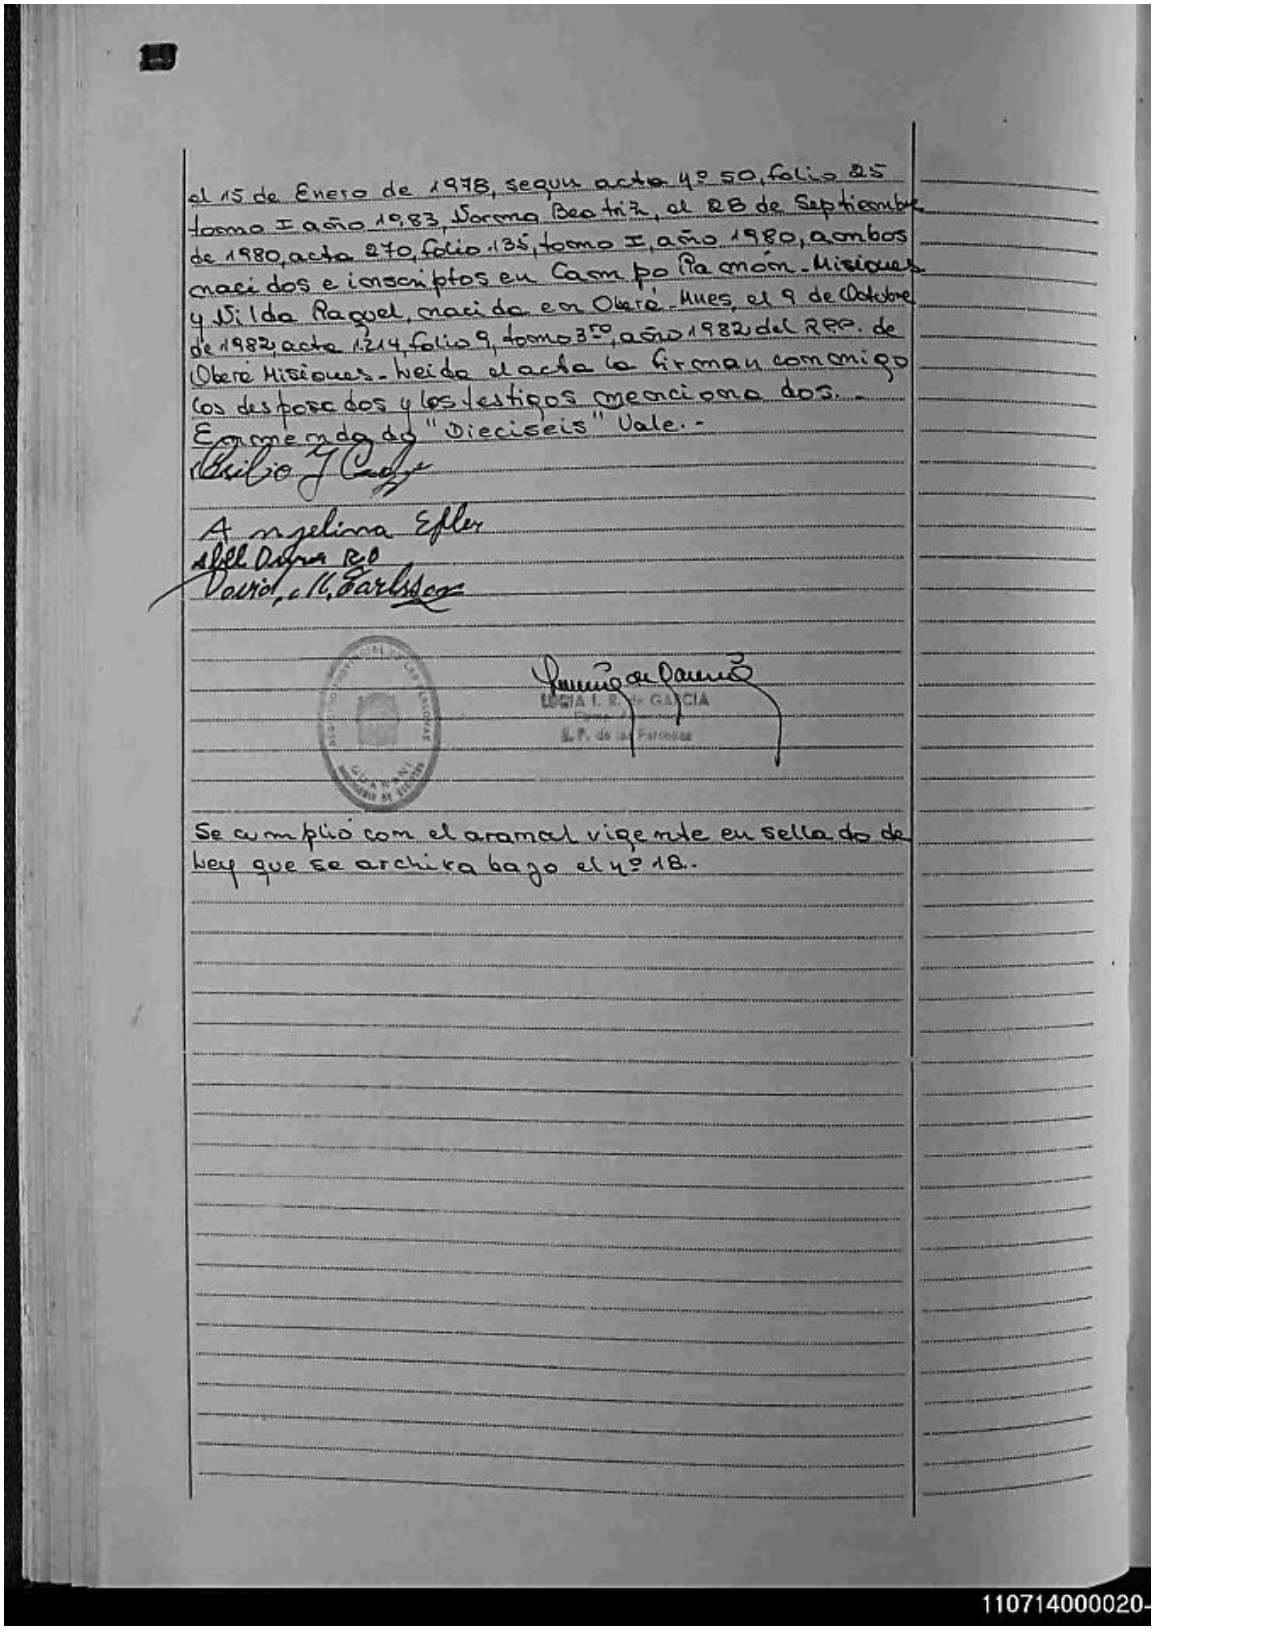 el 15 de Enero de 1978, segun acta nº 50, folio 25
tomo I año 1983, Norma Beatriz, el 28 de Septiembre
de 1980, acta 270, folio 135, tomo I, año 1980, ambos
nacidos e inscriptos en Campo Ramón - Misiones
y Nilda Raquel, nacida en Oberá - Mnes, el 9 de Octubre
de 1982, acta 1214, folio 9, tomo 3ro, año 1982 del RPP. de
Oberá Misiones - Leida el acta la firman conmigo
los desposados y los testigos mencionados. -
Enmendado "Dieciseis" Vale. -
Angelina Efler
David, M, Carlsson
REGISTRO PROVINCIAL DE LAS PERSONAS
GUARANI
LUCIA I. R. de GARCIA
R. P. de las Personas
Se cumplió con el arancel vigente en sellado de
Ley que se archiva bajo el nº 18. -
110714000020-